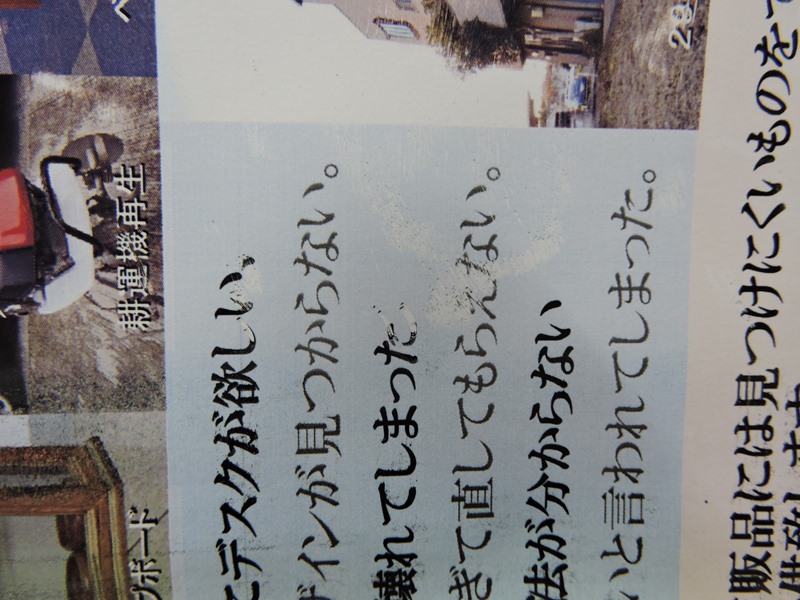 ボード
耕運機再生
デスクが欲しい、
インが見つからない。
壊れてしまった
ぎて直してもらえない。
法が分からない
いと言われてしまった。
販品には見つけにくいものを